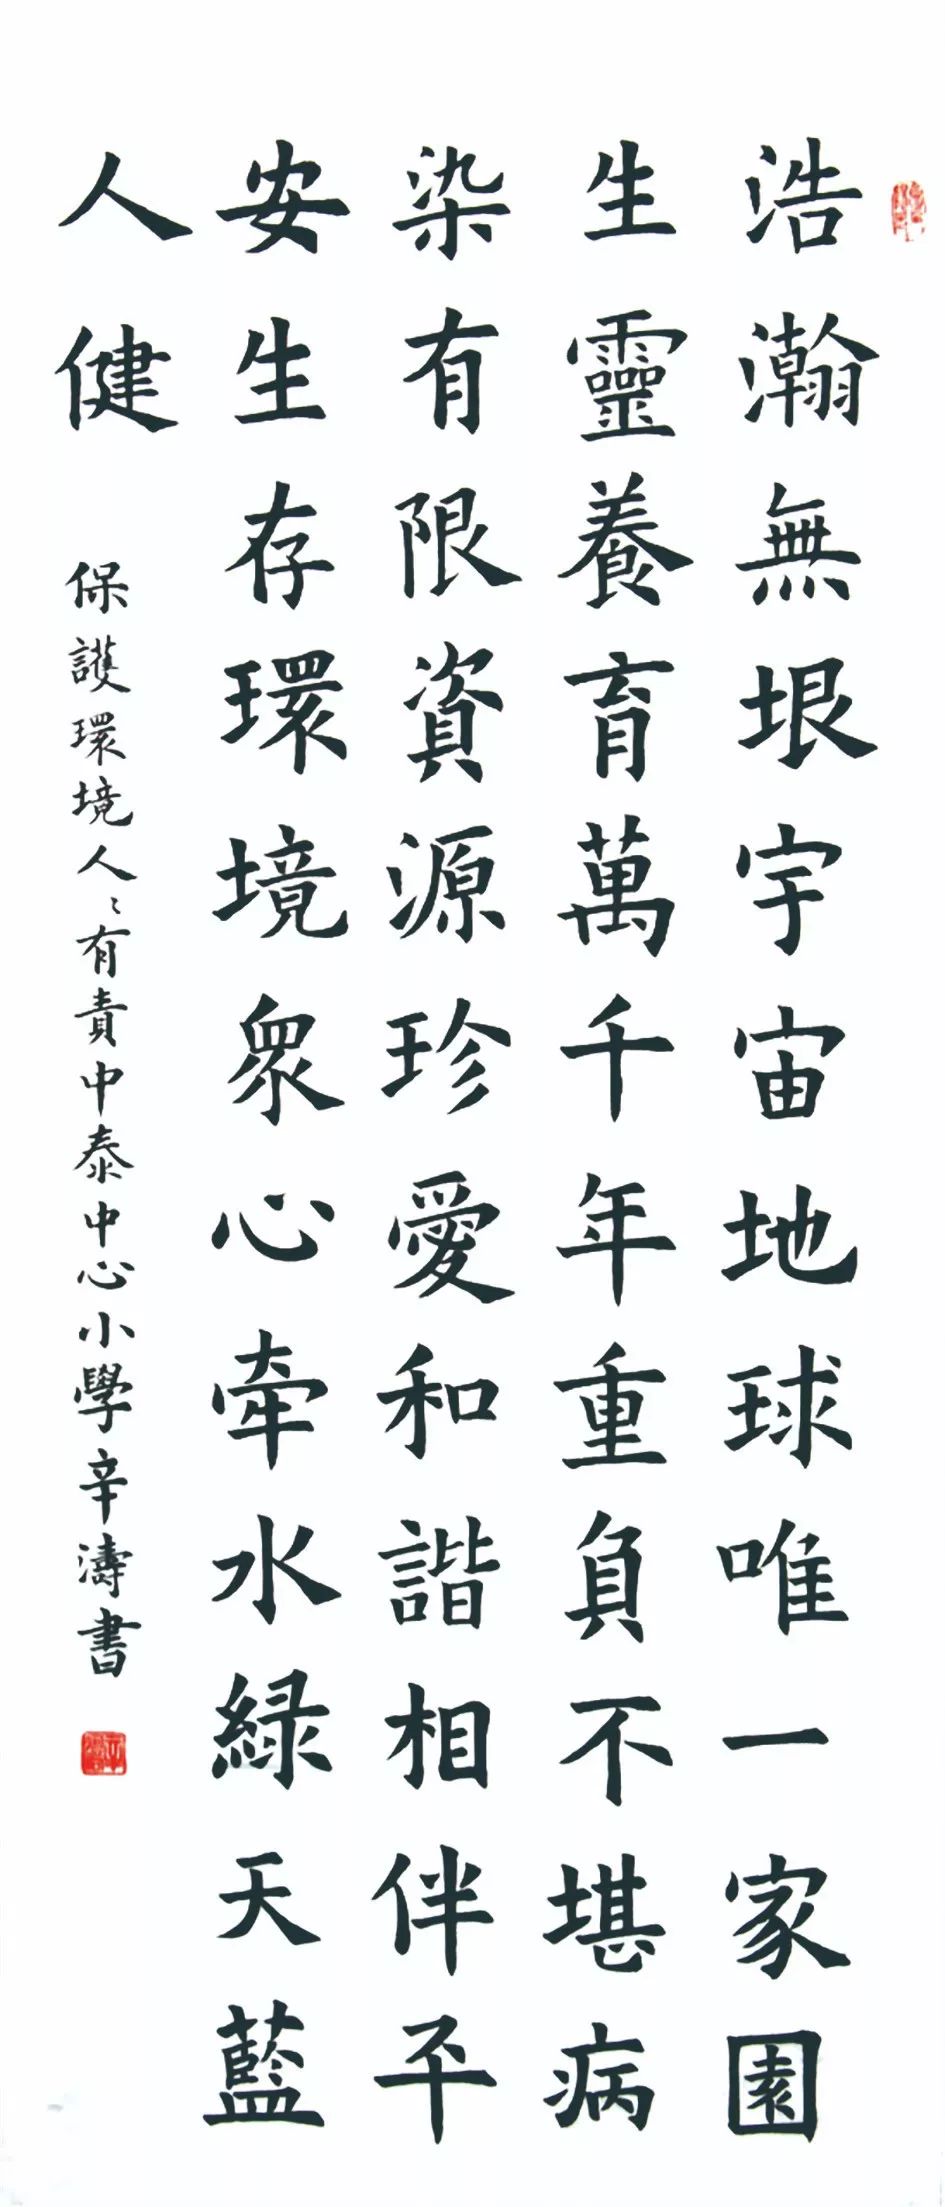 浩瀚無垠宇宙地球唯一家園
生靈養育萬千年重負不堪病
染有限資源珍愛和諧相伴平
安生存環境衆心牽水緑天藍
人健
保護環境人〻有責中泰中心小學辛濤書